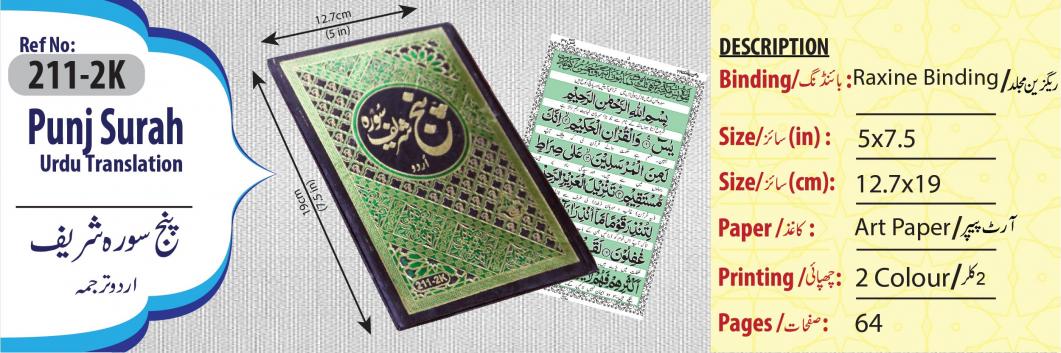 Ref No:
211-2K
Punj Surah
Urdu Translation
پنج سورہ شریف
اردو ترجمہ
12.7cm
(5 in)
19cm
(7.5 in)
پنج سورہ
شریف
اردو
211-2K
بِسْمِ اللهِ الرَّحْمٰنِ الرَّحِيْمِ
يٰسٓ وَالْقُرْاٰنِ الْحَكِيْمِ اِنَّكَ
لَمِنَ الْمُرْسَلِيْنَ عَلٰى صِرَاطٍ
مُّسْتَقِيْمٍ تَنْزِيْلَ الْعَزِيْزِ الرَّحِ
لِتُنْذِرَ قَوْمًا مَّآ اُنْذِرَ
غٰفِلُوْنَ لَقَ
اَكْثَرِهِمْ فَهُمْ
DESCRIPTION
Binding/بائنڈنگ: Raxine Binding/ریگزین مجلد
Size/سائز (in) : 5x7.5
Size/سائز (cm): 12.7x19
Paper /کاغذ : Art Paper/آرٹ پیپر
Printing /چھپائی: 2 Colour/2کلر
Pages /صفحات: 64